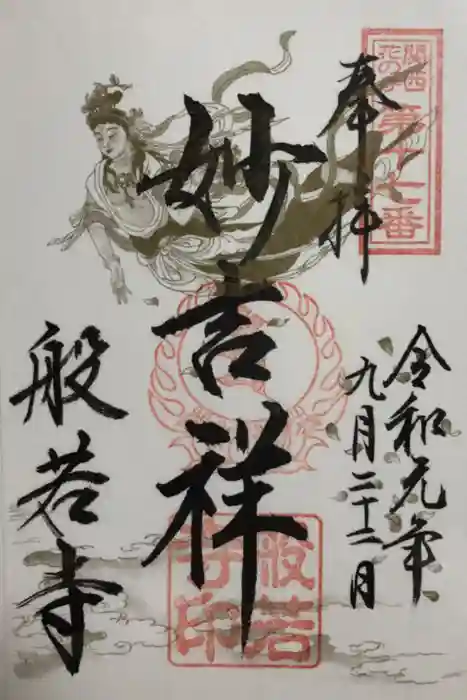 奉拝
関西
花の寺
第十七番
令和元年
九月二十二日
妙吉祥
般若寺
般若
寺印